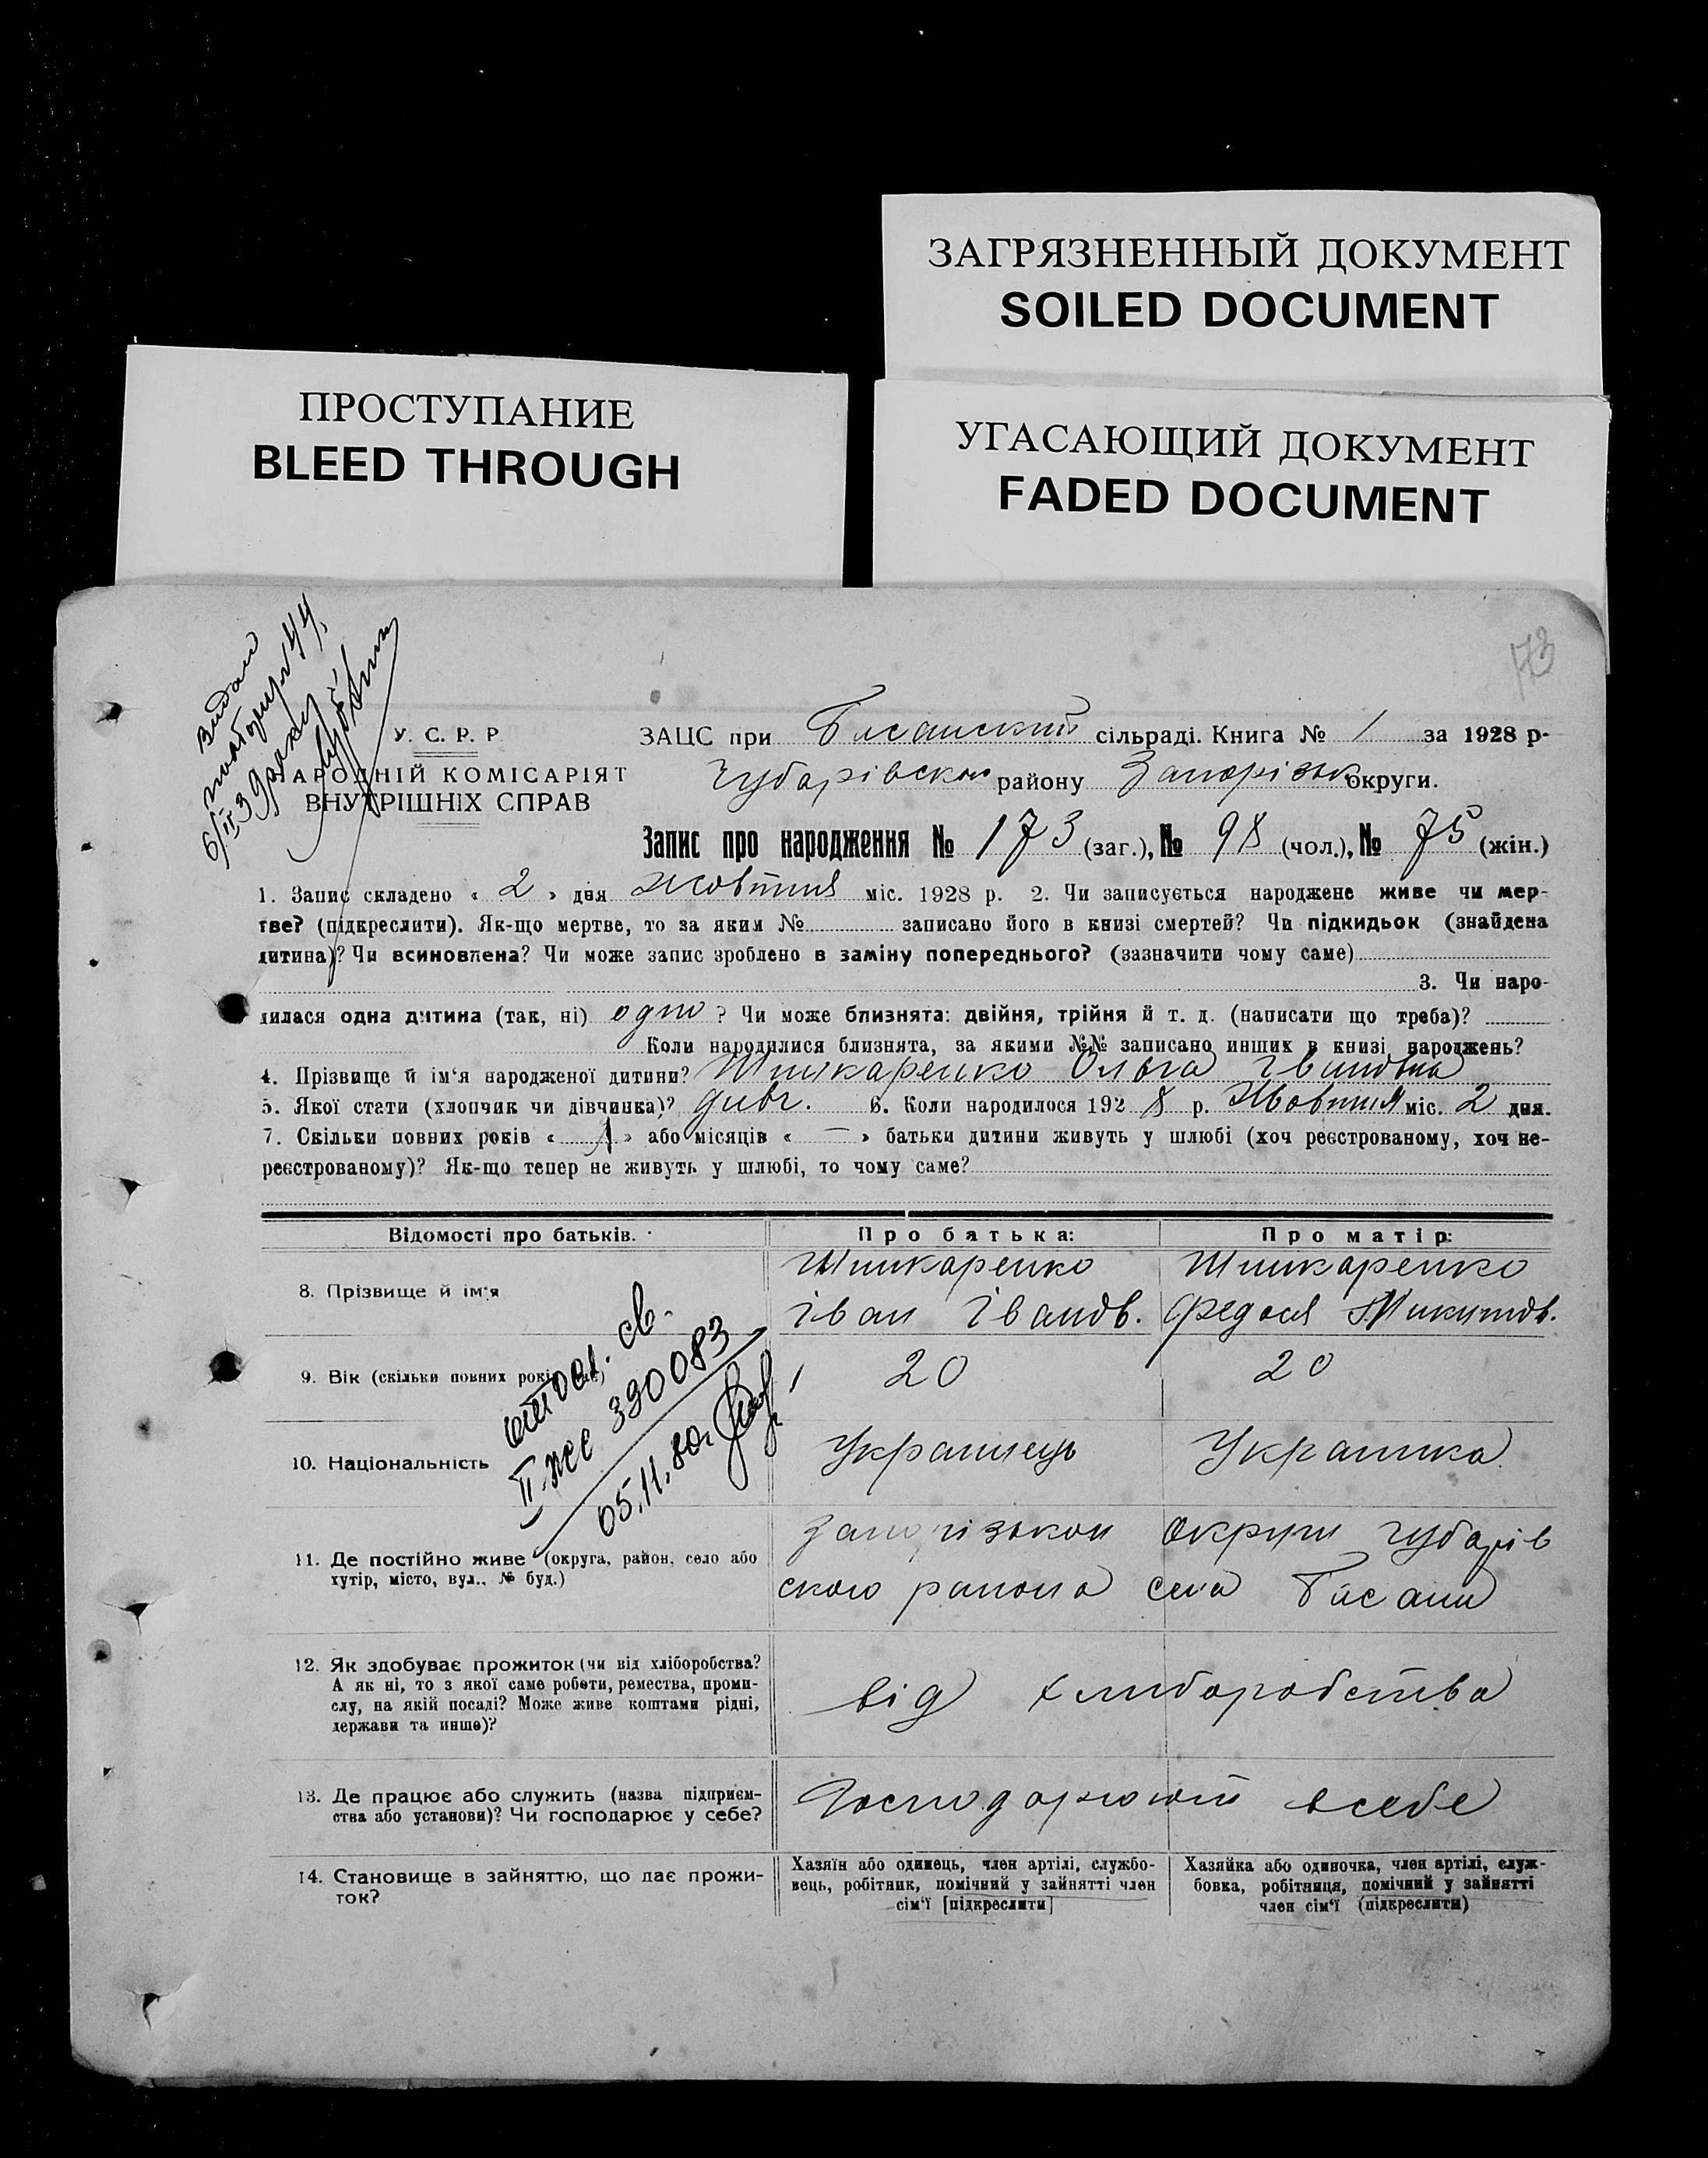 ЗАГРЯЗНЕННЫЙ ДОКУМЕНТ
SOILED DOCUMENT
ПРОСТУПАНИЕ
BLEED THROUGH
УГАСАЮЩИЙ ДОКУМЕНТ
FADED DOCUMENT
173
Видано
повторну
У. С. Р. Р
НАРОДНІЙ КОМІСАРІЯТ
ВНУТРІШНІХ СПРАВ
ЗАЦС при сільраді. Книга № 1 за 1928 р-
Чубарівського району Запорізьк округи.
Запис про народження № 173 (заг.), № 98 (чол.), № 75 (жін.)
1. Запис складено « 2 » дня Жовтня міс. 1928 р. 2. Чи записується народжене живе чи мер-
тве? (підкреслити). Як-що мертве, то за яким № записано його в книзі смертей? Чи підкидьок (знайдена
дитина)? Чи всиновлена? Чи може запис зроблено в заміну попереднього? (зазначити чому саме)
3. Чи наро-
дилася одна дитина (так, ні) одно ? Чи може близнята: двійня, трійня й т. д. (написати що треба)?
Коли народилися близнята, за якими №№ записано инших в книзі народжень?
4. Прізвище й ім'я народженої дитини? Шинкаренко Ольга Івановна
5. Якої стати (хлопчик чи дівчинка)? дивч. 6. Коли народилося 192 8 р. Жовтня міс. 2 дня.
7. Скільки повних років « 1 » або місяців « — » батьки дитини живуть у шлюбі (хоч реєстрованому, хоч не-
реєстрованому)? Як-що тепер не живуть у шлюбі, то чому саме?
Відомості про батьків. Про батька: Про матір:
8. Прізвище й ім'я
Шинкаренко Шинкаренко
Іван Іванов. Федося Микитов.
9. Вік (скільки повних років має) 20 20
10. Національність Украинець Украинка
II жс 390083
05.11.80.
11. Де постійно живе (округа, район, село або
хутір, місто, вул., № буд.)
Запорізькои Округи Чубарів
ского района села
12. Як здобуває прожиток (чи від хліборобства?
А як ні, то з якої саме роботи, ремества, проми-
слу, на якій посаді? Може живе коштами рідні,
держави та инше)?
від хлиборобства
13. Де працює або служить (назва підприєм-
ства або установи)? Чи господарює у себе?
Господарюют всебе
14. Становище в зайняттю, що дає прожи-
ток?
Хазяїн або одинець, член артілі, службо-
вець, робітник, помічний у зайнятті член
сім'ї [підкреслити]
Хазяйка або одиночка, член артілі, служ-
бовка, робітниця, помічний у зайнятті
член сім'ї (підкреслити)